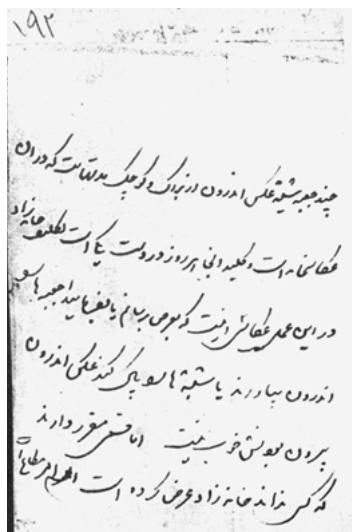 ۱۹۲
چند جعبه شیشهٔ عکس اندرون از بزرگ و کوچک مدتهاست که در ان
عکاسخانه است و کلید انجا هر روز در دست یکی است تکلیف خانه‌زاد
در این عمل عکاسی نیست که بعرض برسانم یا بفرمایید جعبه‌ها
اندرون بیاورند یا شیشه‌ها پاک کند عکس اندرون
بیرون بودنش خوب نیست اما قسمی مقرر دارند
که کس نداند خانه زاد عرض کرده است